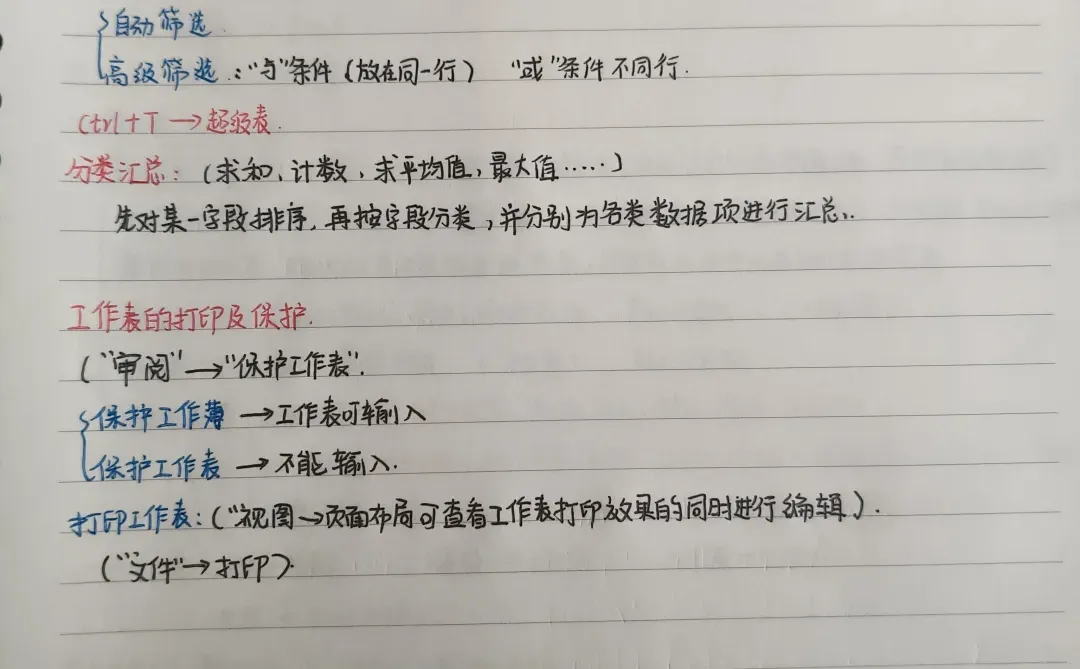 自动筛选.
高级筛选.:"与"条件(放在同一行) "或"条件不同行.
Ctrl+T→超级表.
分类汇总:(求和、计数、求平均值,最大值……)
先对某一字段排序,再按字段分类,并分别为各类数据项进行汇总.
工作表的打印及保护.
("审阅"→"保护工作表".
保护工作薄→工作表可输入
保护工作表→不能输入.
打印工作表:("视图→页面布局可查看工作表打印效果的同时进行编辑).
("文件"→打印).